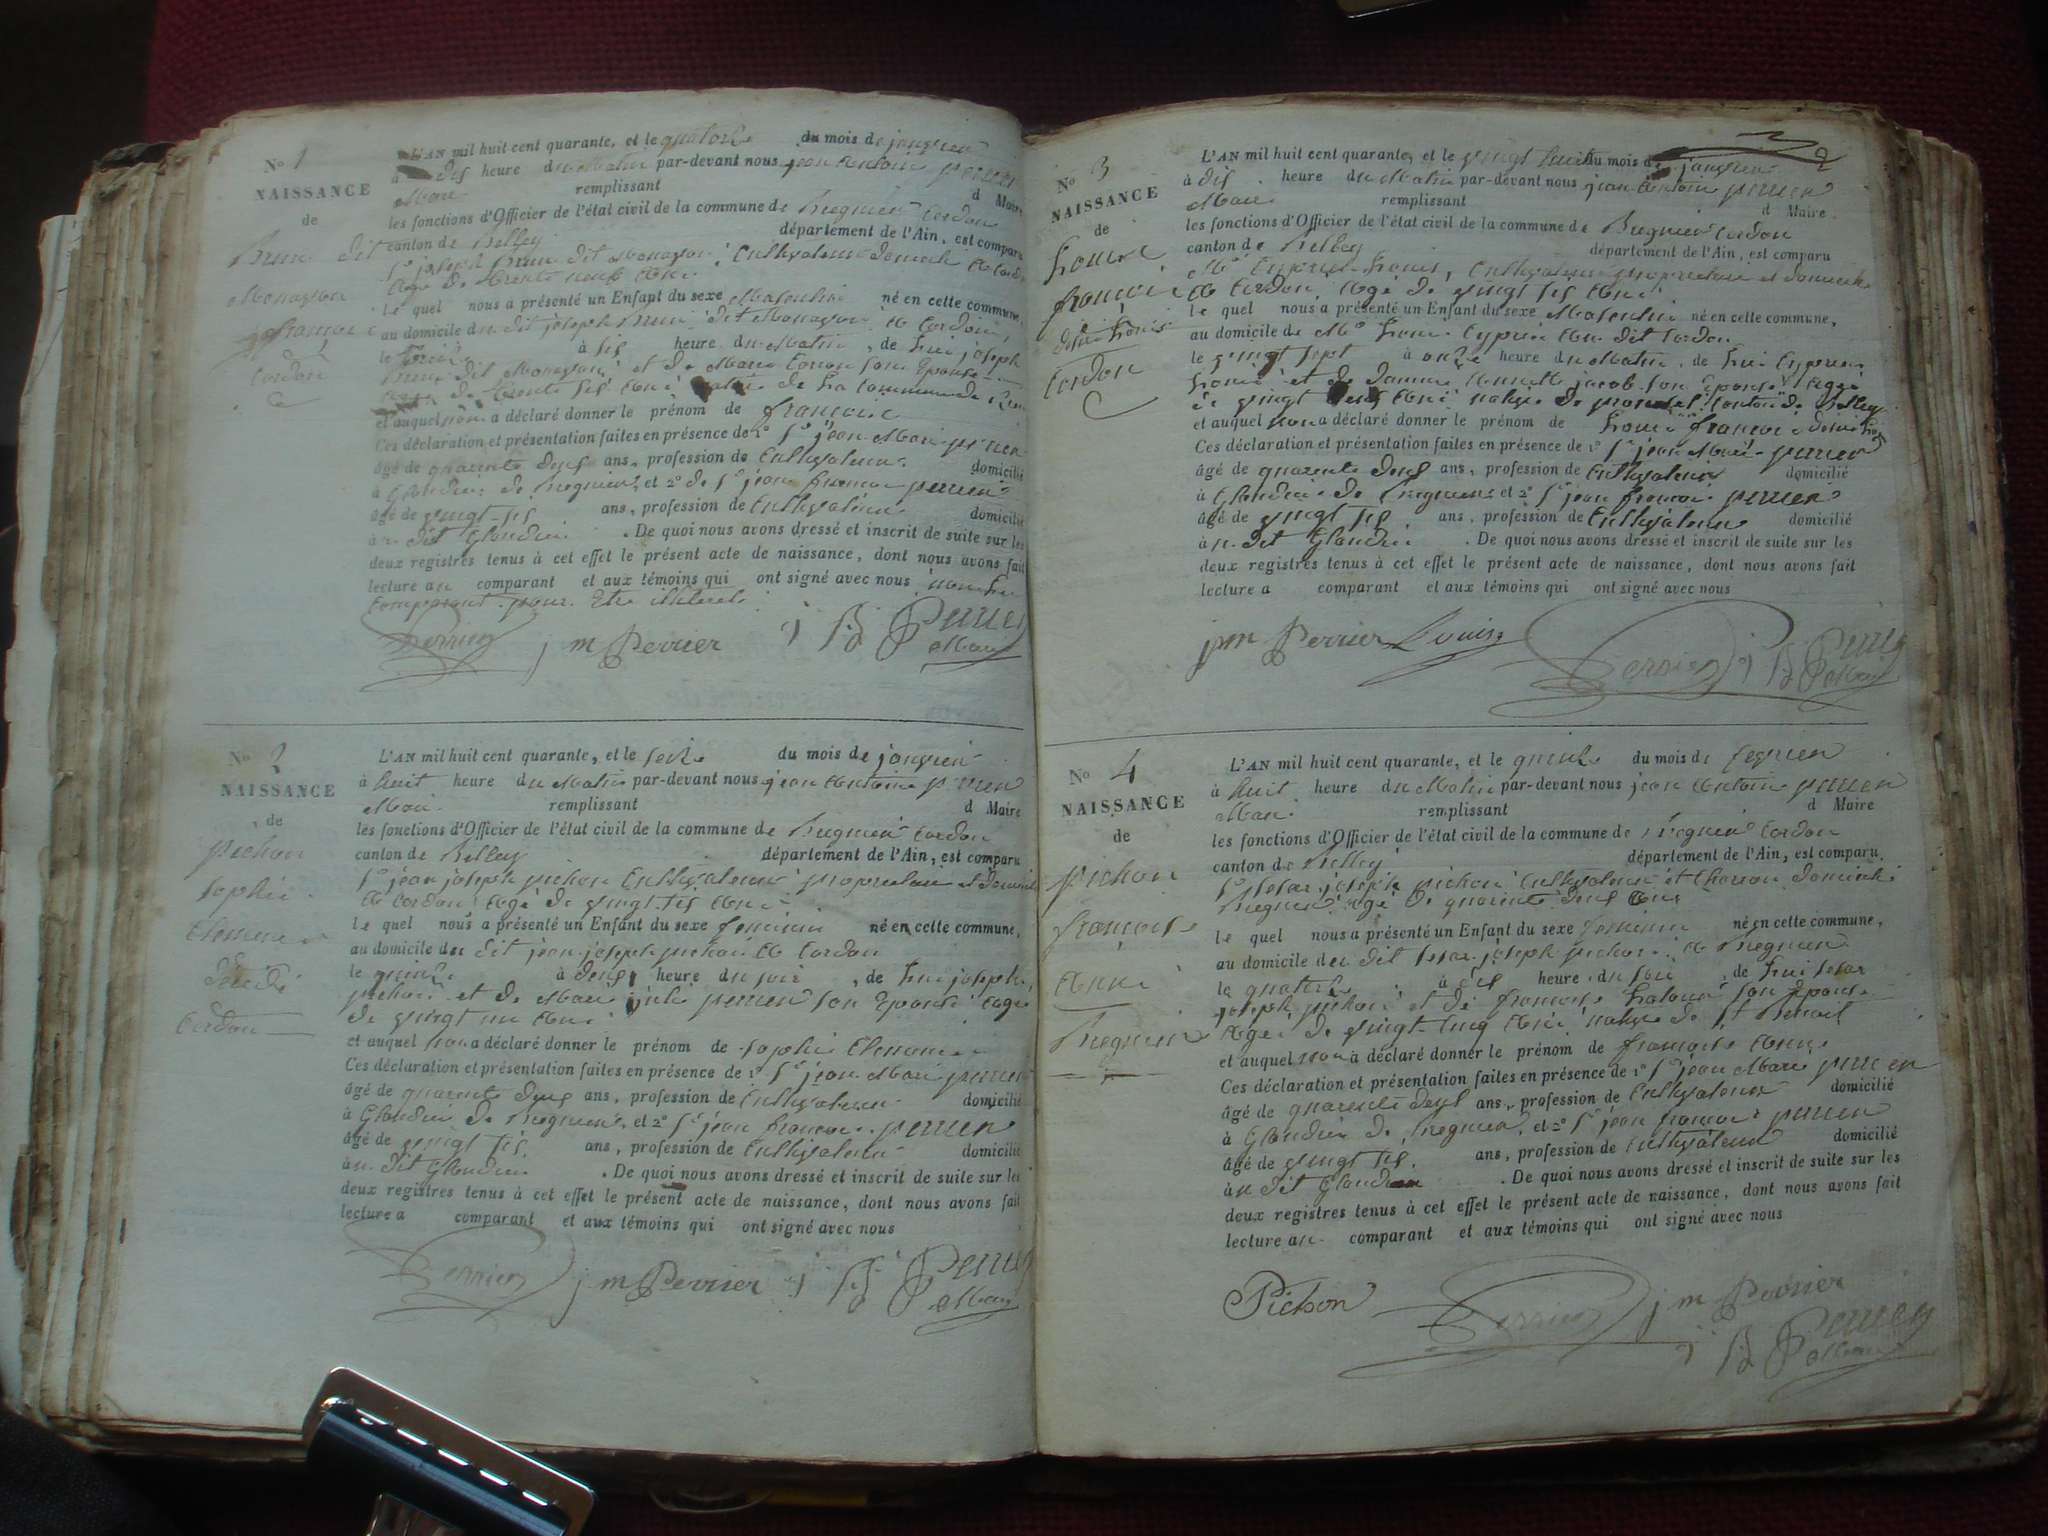 No 1
NAISSANCE
de
Brun dit
Monavon
françois
Cordon
L'AN mil huit cent quarante, et le quatorze du mois de janvier
à dis heure du Matin par-devant nous jean Antoine perrier
Maire remplissant d Maire
les fonctions d'Officier de l'état civil de la commune de Bregnier Cordon
canton de Belley département de l'Ain, est comparu
Sr joseph Brun dit Monavon Cultivateur domicilié à Cordon
Agé de trente neuf Ans
le quel nous a présenté un Enfant du sexe Masculin né en cette commune,
au domicile du dit joseph Brun dit Monavon à Cordon
le à sis heure du Matin, de lui joseph
Brun dit Monavon et de Marie son Epouse
de trente sis Ans de La Commune de
et auquel nous a déclaré donner le prénom de françois
Ces déclaration et présentation faites en présence de 1º Sr jean Marie perrier
âgé de quarente deus ans, profession de Cultivateur domicilié
à Glandieu de Bregnier et 2º de Sr jean françois perrier
âgé de vingt sis ans, profession de Cultivateur domicilié
à dit Glandieu . De quoi nous avons dressé et inscrit de suite sur les
deux registres tenus à cet effet le présent acte de naissance, dont nous avons fait
lecture au comparant et aux témoins qui ont signé avec nous non le
Comparant pour Etre illiteré
Perrier j m Perrier j B Perrier
Maire
No 2
NAISSANCE
de
pichon
sophie
Clemence
Cordon
L'AN mil huit cent quarante, et le seize du mois de janvier
à huit heure du Matin par-devant nous jean Antoine perrier
Maire remplissant d Maire
les fonctions d'Officier de l'état civil de la commune de Bregnier Cordon
canton de Belley département de l'Ain, est comparu
Sr jean joseph pichon Cultivateur proprietaire et domicilié
à Cordon Agé de vingt sis Ans
le quel nous a présenté un Enfant du sexe feminin né en cette commune,
au domicile du dit jean joseph pichon à Cordon
le quinze à deus heure du soir, de lui joseph
pichon et de Marie julie perrier son Epouse Agée
de vingt un Ans
et auquel nous a déclaré donner le prénom de sophie Clemence
Ces déclaration et présentation faites en présence de 1º Sr jean Marie perrier
âgé de quarente deus ans, profession de Cultivateur domicilié
à Glandieu de Bregnier, et 2º Sr jean françois perrier
âgé de vingt sis ans, profession de Cultivateur domicilié
à dit Glandieu . De quoi nous avons dressé et inscrit de suite sur les
deux registres tenus à cet effet le présent acte de naissance, dont nous avons fait
lecture a comparant et aux témoins qui ont signé avec nous
Perrier j m Perrier j B Perrier
Maire
2
No 3
NAISSANCE
de
Louis
françois
Cordon
L'AN mil huit cent quarante, et le vingt huit du mois de janvier
à dis heure du Matin par-devant nous jean Antoine perrier
Maire remplissant d Maire
les fonctions d'Officier de l'état civil de la commune de Bregnier Cordon
canton de Belley département de l'Ain, est comparu
Mr Cyprien Louis, Cultivateur proprietaire et domicilié
à Cordon Agé de vingt sis Ans
le quel nous a présenté un Enfant du sexe Masculin né en cette commune,
au domicile de Mr Louis Cyprien Au dit Cordon
le vingt sept à onze heure du Matin, de lui Cyprien
Louis et de Damme Annette jacob son Epouse Agée
de vingt Ans native de Canton de Belley
et auquel nous a déclaré donner le prénom de Louis françois
Ces déclaration et présentation faites en présence de 1º Sr jean Marie perrier
âgé de quarente deus ans, profession de Cultivateur domicilié
à Glandieu de Bregnier et 2º Sr jean françois perrier
âgé de vingt sis ans, profession de Cultivateur domicilié
à dit Glandieu . De quoi nous avons dressé et inscrit de suite sur les
deux registres tenus à cet effet le présent acte de naissance, dont nous avons fait
lecture a comparant et aux témoins qui ont signé avec nous
j m Perrier Louis Perrier j B Perrier
Maire
No 4
NAISSANCE
de
pichon
françoise
Anne
Bregnier
L'AN mil huit cent quarante, et le quinze du mois de fevrier
à huit heure du Matin par-devant nous jean Antoine perrier
Maire remplissant d Maire
les fonctions d'Officier de l'état civil de la commune de Bregnier Cordon
canton de Belley département de l'Ain, est comparu
Sr joseph pichon Cultivateur et domicilié
Bregnier Agé de quarente deus Ans
le quel nous a présenté un Enfant du sexe feminin né en cette commune,
au domicile du dit joseph pichon à Bregnier
le quatorze à sis heure du soir, de lui
joseph pichon et de françoise son Epouse
Agée de vingt cinq Ans native de St Benoit
et auquel nous a déclaré donner le prénom de françoise Anne
Ces déclaration et présentation faites en présence de 1º Sr jean Marie perrier
âgé de quarente deus ans, profession de Cultivateur domicilié
à Glandieu de Bregnier, et 2º Sr jean françois perrier
âgé de vingt sis ans, profession de Cultivateur domicilié
à dit Glandieu . De quoi nous avons dressé et inscrit de suite sur les
deux registres tenus à cet effet le présent acte de naissance, dont nous avons fait
lecture au comparant et aux témoins qui ont signé avec nous
Pichon Perrier j m Perrier
j B Perrier
Maire